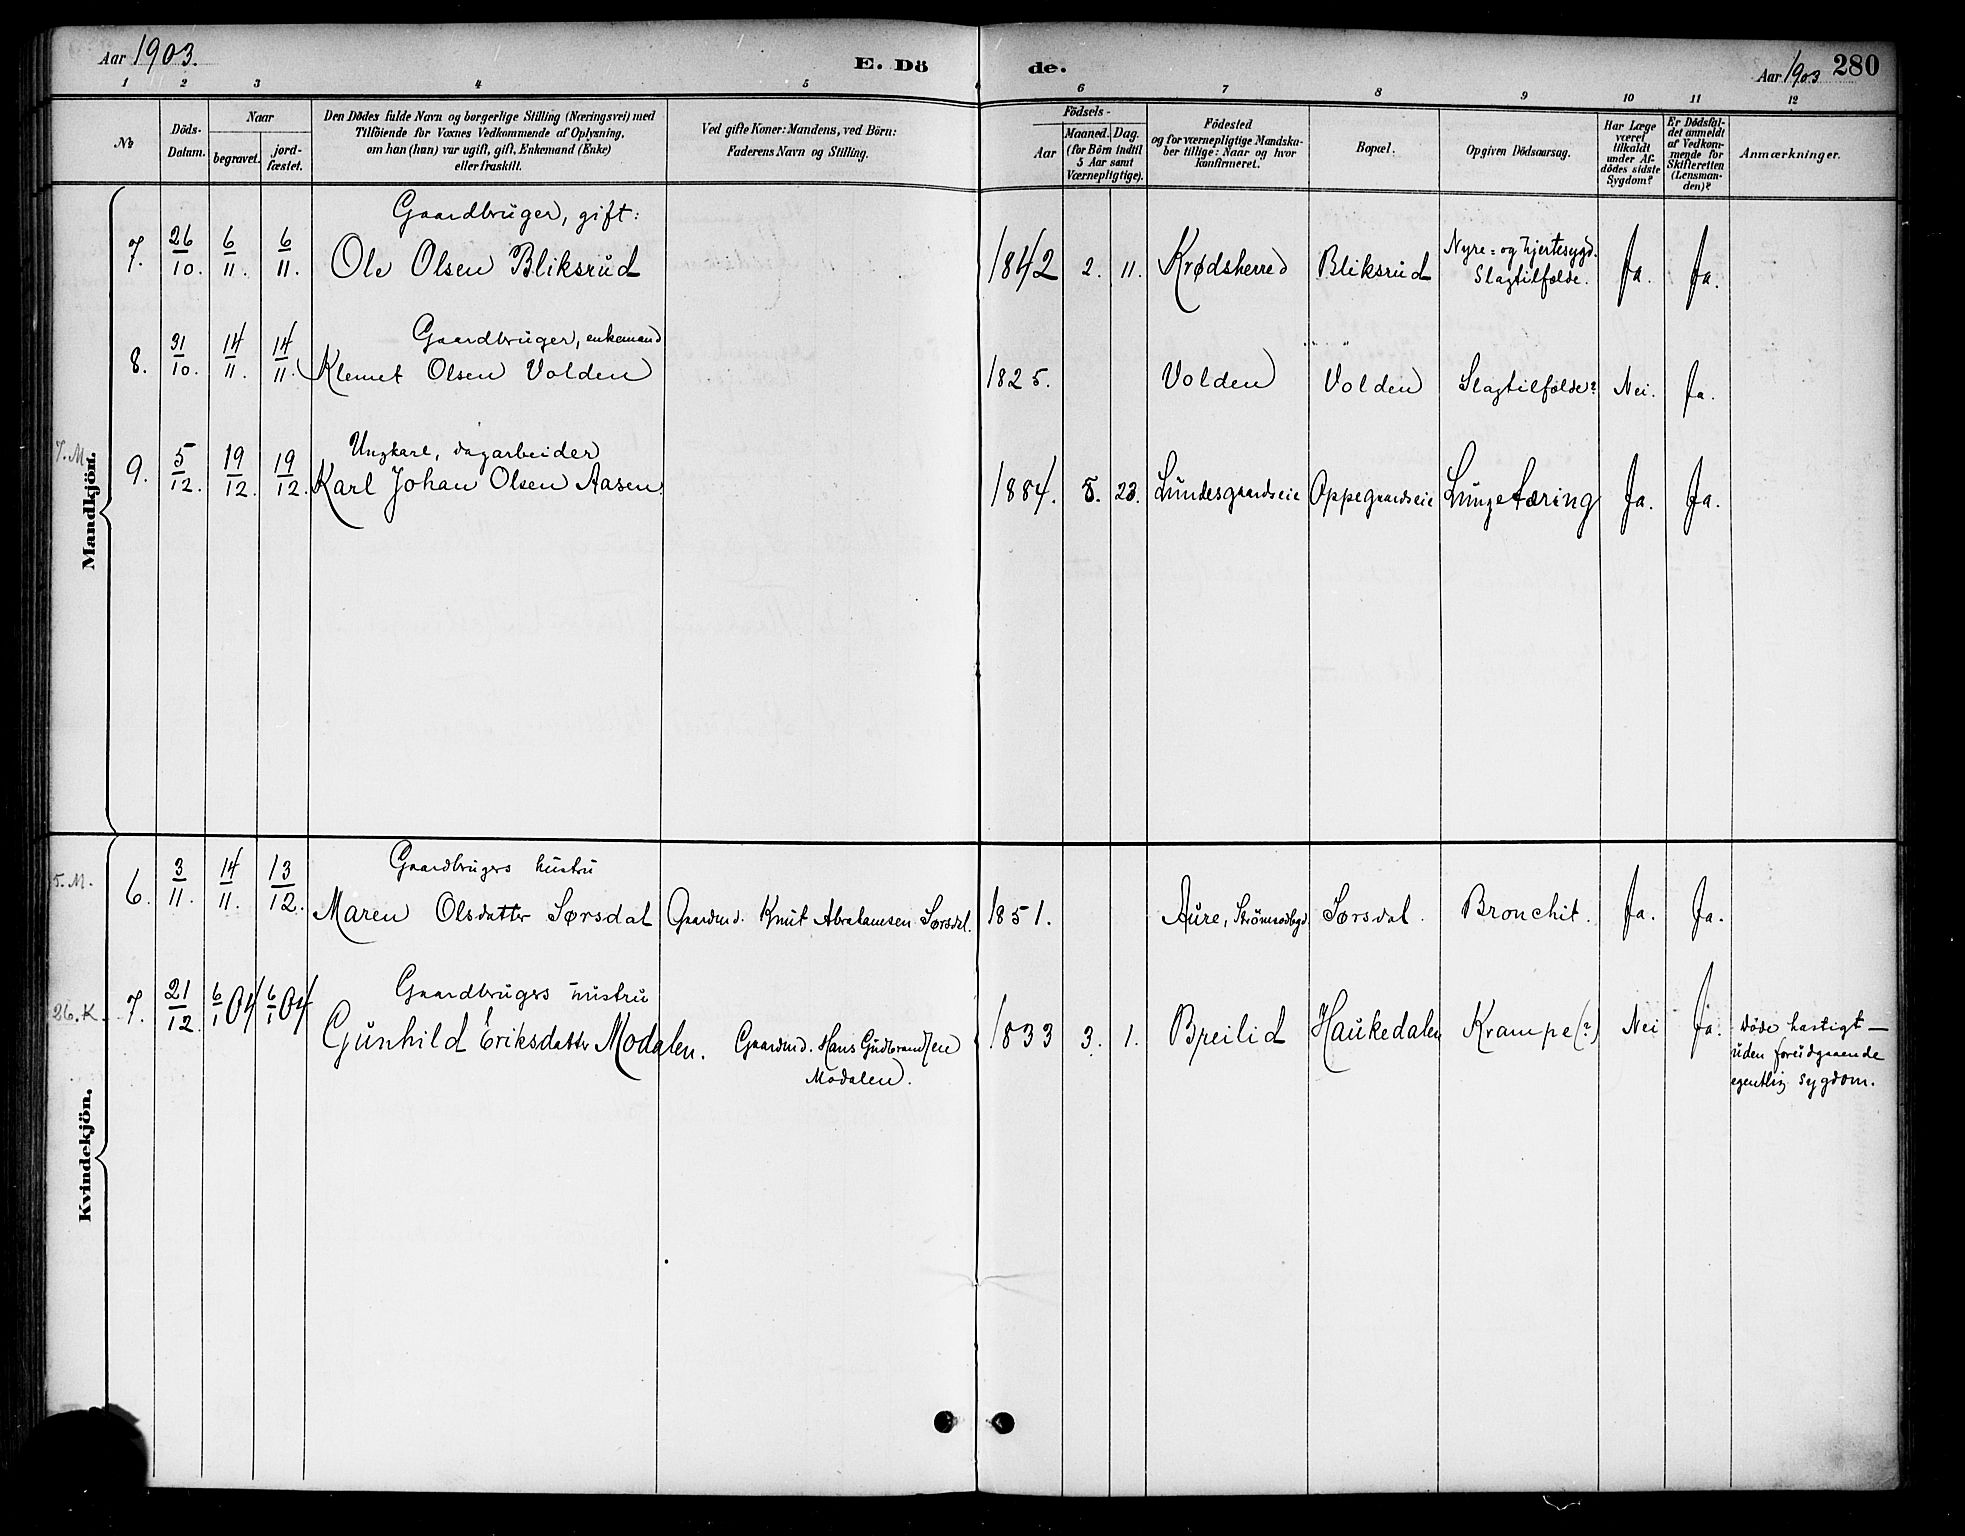 Aar 1903.
E. Dö de.
Aar 1903 280
1 2 3 4 5 6 7 8 9 10 11 12
No
Döds-
Datum.
Naar
begravet.
jord-
fæstet.
Den Dødes fulde Navn og borgerlige Stilling (Næringsvei) med
Tilföiende for Voxnes Vedkommende af Oplysning,
om han (hun) var ugift, gift, Enkemand (Enke)
eller fraskilt.
Ved gifte Koner: Mandens, ved Börn:
Faderens Navn og Stilling.
Födsels-
Aar
Maaned. Dag.
(for Börn indtil
5 Aar samt
Værnepligtige).
Födested
og for værnepligtige Mandska-
ber tillige: Naar og hvor
konfirmeret.
Bopæl.
Opgiven Dödsaarsag.
Har Læge
været
tilkaldt
under Af-
dödes sidste
Sygdom?
Er Dödsfal-
det anmeldt
af Vedkom-
mende for
Skifteretten
(Lensman-
den)?
Anmærkninger.
Mandkjön.
Gaardbruger, gift:
7. 26/10. 6/11. 6/11. Ole Olsen Bliksrud 1842 2. 11. Krødsherred Bliksrud Nyre- og hjertesygd. Ja. Ja.
Slagtilfælde.
Gaardbruger, enkemand
8. 31/10. 14/11. 14/11. Klemet Olsen Volden 1825. Volden Volden Slagtilfælde? Nei. Ja.
7. M.
Ungkarl, dagarbeider
9. 5/12. 19/12. 19/12. Karl Johan Olsen Aasen 1884. 8. 23. Lundesgaardseie Oppegaardseie Lungetæring Ja. Ja.
Kvindekjön.
5. M.
Gaardbrugers hustru
6. 3/11. 14/11. 13/12. Maren Olsdatter Sørsdal Gaardmd. Knut Abrahamsen Sørsdal. 1851. Aure, Strömsodbygd Sørsdal. Bronchit. Ja. Ja.
26. K.
Gaardbrugers hustru
7. 21/12. 6/1 04 6/1 04 Gunhild Eriksdatter Modalen. Gaardmd. Hans Gudbrandsen 1833 3. 1. Breilid Haukedalen Krampe (?) Nei Ja. Døde hastigt —
Modalen. uden forudgaaende
egentlig sygdom.